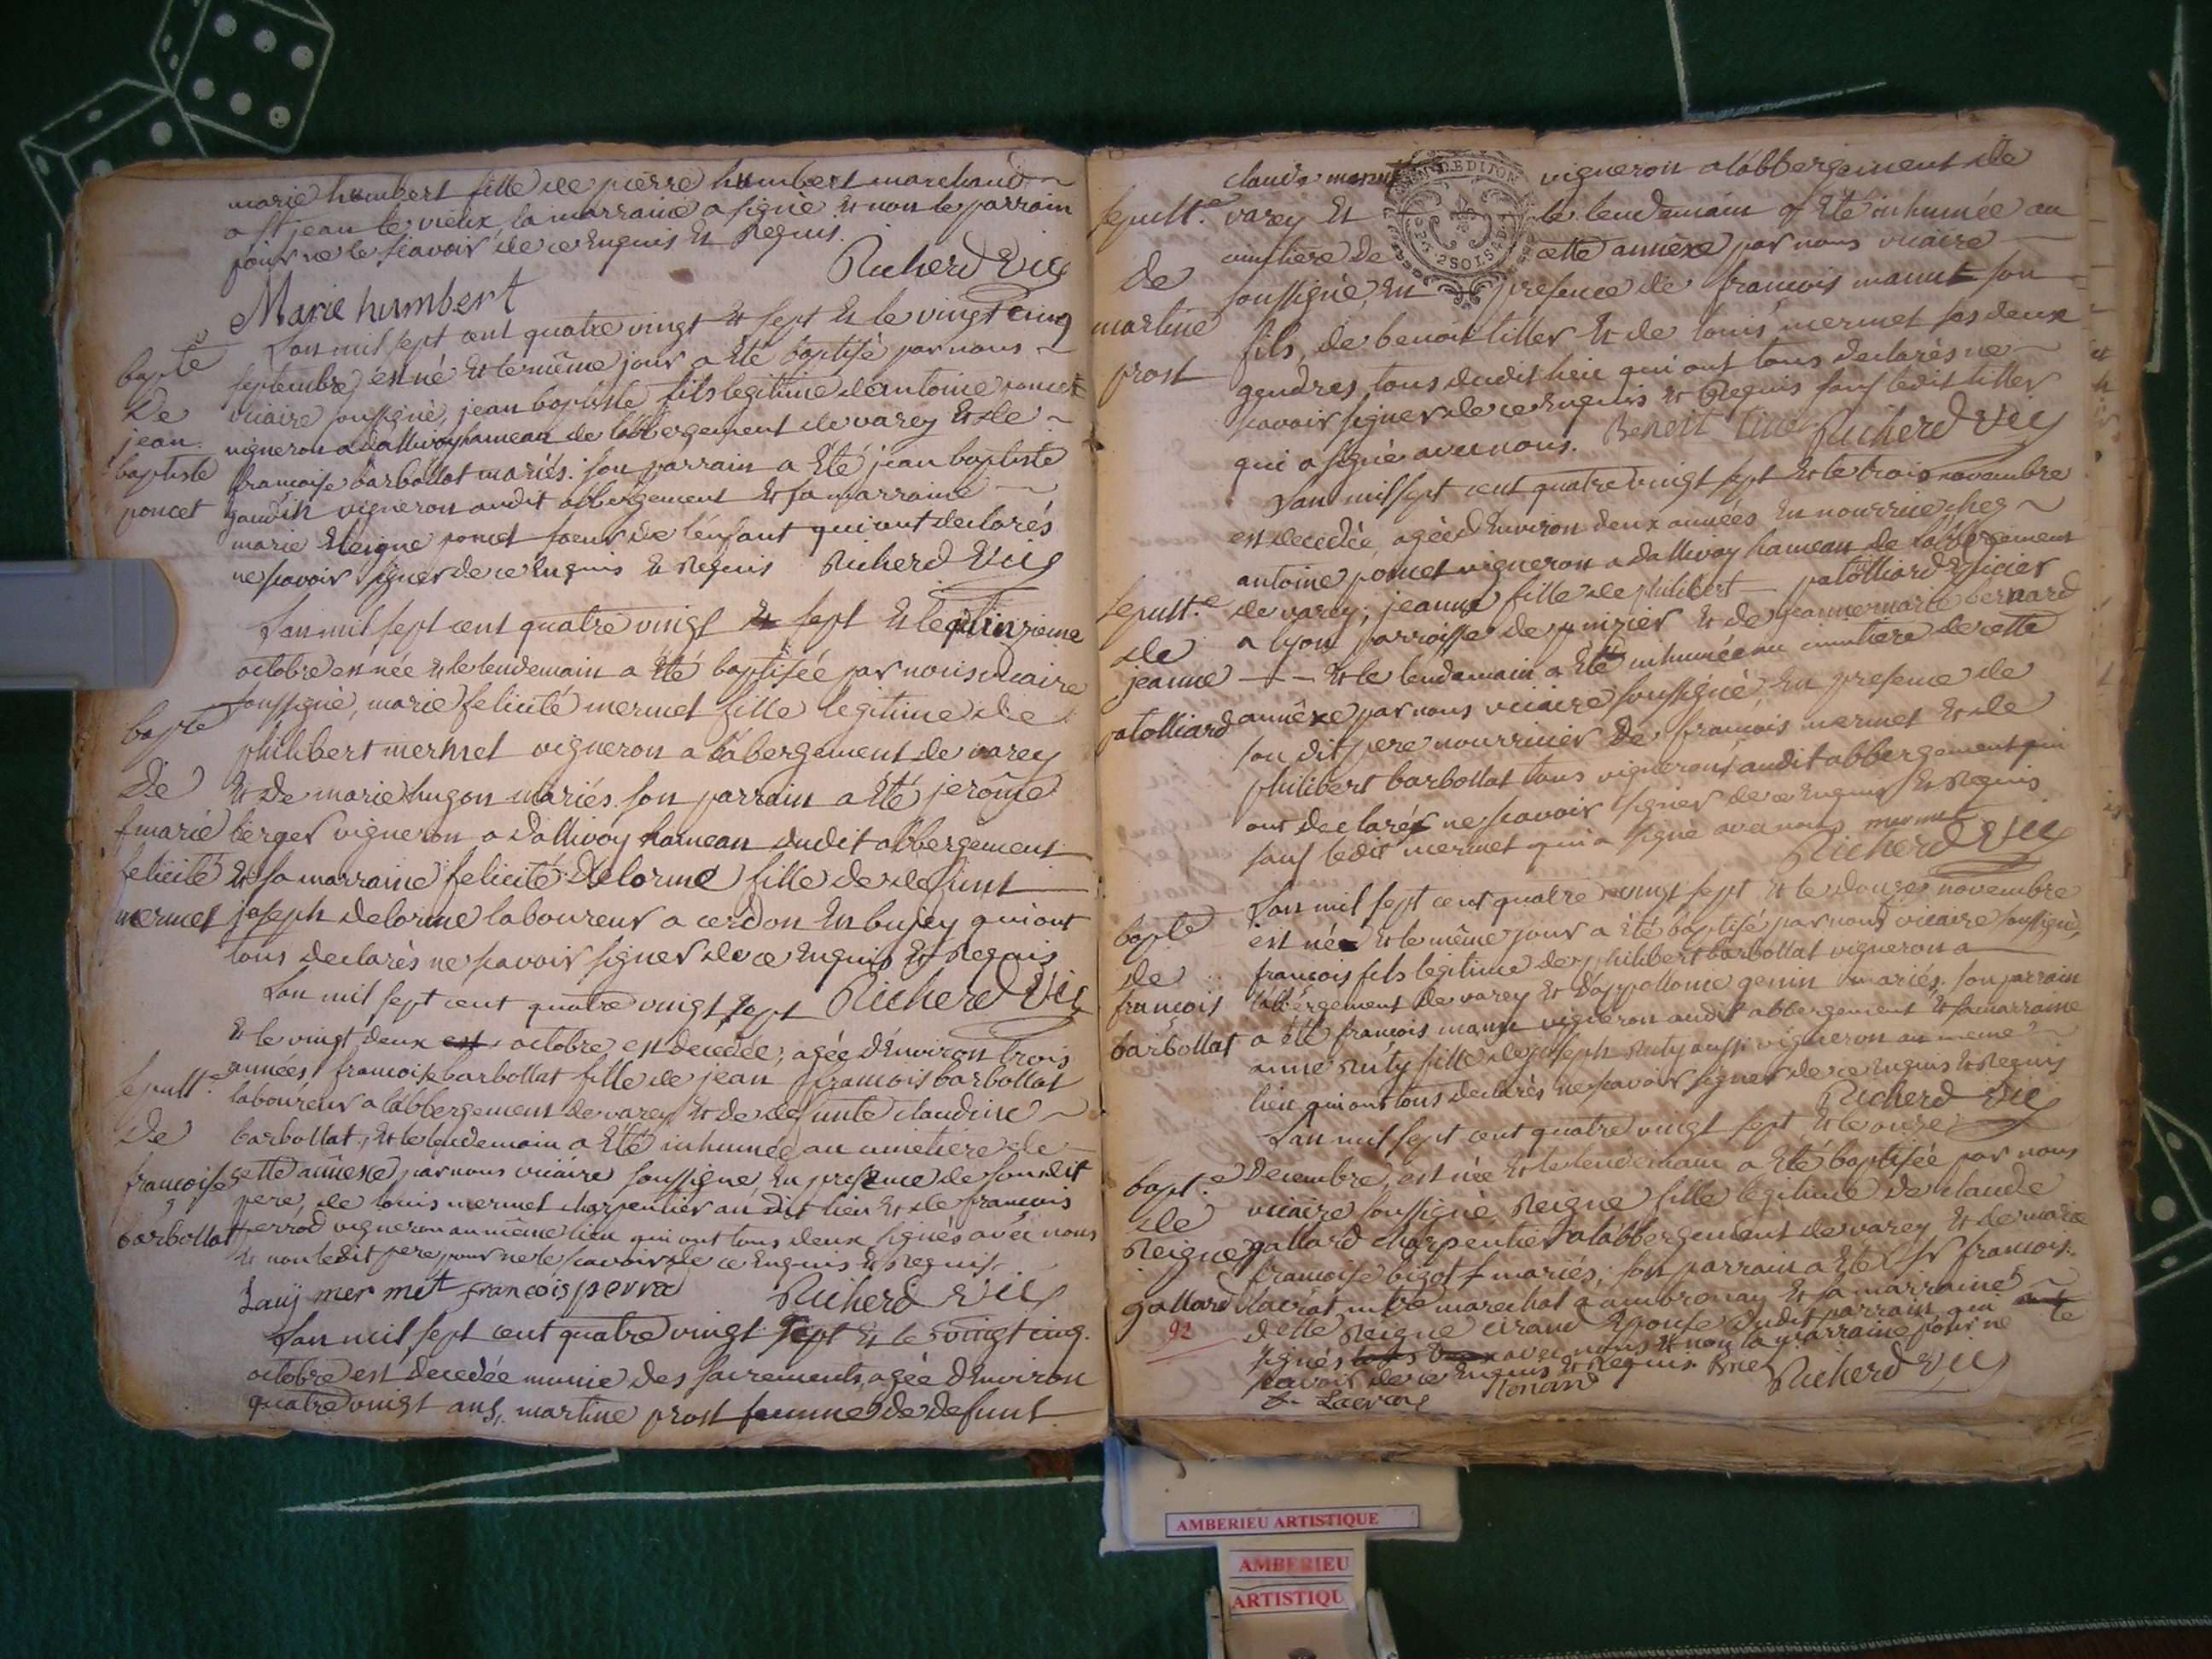 marie humbert fille de pierre humbert marchand
a st jean le vieux, la marraine a signé et non le parrain
pour ne le scavoir, de ce Enquis et Requis.
Richerd Vic
Marie humbert
bapte De jean baptiste poncet
Lan mil sept cent quatre vingt et sept Et le vingt cinq
septembre, est né Et le même jour a Eté baptisé par nous
vicaire soussigné, jean baptiste fils legitime d'antoine poncet
vigneron a dallivoy hameau de labbergement de varey Et de
francoise barbollat mariés. son parrain a Eté jean baptiste
gaudin vigneron audit abbergement Et sa marraine
marie Reigne poncet soeur de l'enfant qui ont declarés
ne scavoir signer de ce Enquis Et Requis Richerd Vic
bapte De marie felicité mermet
Lan mil sept cent quatre vingt et sept Et le quinzieme
octobre est née et le lendemain a Eté baptisée par nous vicaire
soussigné, marie felicité mermet fille legitime de
philibert mermet vigneron a labergement de varey
Et De marie hugon mariés. son parrain a Eté jerôme
berger vigneron a Dallivoy hameau dudit abbergement
Et sa marraine felicité Delorme fille de defunt
joseph delorme laboureur a cerdon En bujey qui ont
tous declarés ne scavoir signer de ce Enquis Et Requis
Richerd Vic
sepult.e De francoise barbollat
Lan mil sept cent quatre vingt sept
Et le vingt deux est octobre est decedée, agée d'Environ trois
années, francoise barbollat fille de jean francois barbollat
laboureur a labbergement de varey Et de defunte claudine
barbollat, Et le lendemain a Eté inhumée au cimetiere de
cette annexe, par nous vicaire soussigné, En presence de son dit
pere, de louis mermet charpentier au dit lieu Et de francois
perrod vigneron au même lieu qui ont tous deux signés avec nous
Et non ledit pere pour ne le scavoir de ce Enquis Et Requis.
Lauj mer met francois perra Richerd Vic
Lan mil sept cent quatre vingt sept Et le vingt cinq
octobre est decedée munie des sacrements, agée d'Environ
quatre vingt ans, martine prost femme de defunt
sepult.e De martine prost
claude manut vigneron a labbergement de
varey Et le lendemain a Eté inhumée au
cimetiere De cette annexe par nous vicaire
soussigné, En presence de francois manut son
fils, de benoit tiller Et de louis mermet ses deux
gendres tous dudit lieu qui ont tous declarés ne
scavoir signer de ce Enquis Et Requis sauf ledit tiller
qui a signé avec nous. Benoit Richerd Vic
sepult.e de jeanne patolliard
Lan mil sept cent quatre vingt sept Et le trois novembre
est decedée, agée d'Environ deux années En nourrice chez
antoine poncet vigneron a dallivoy hameau de labbergement
de varey, jeanne fille de philibert patolliard Epicier
a lyon parroisse de st nizier Et de jeanne marie bernard
Et le lendemain a Eté inhumée au cimetiere de cette
annéxe par nous vicaire soussigné En presence de
son dit pere nourricier De francois mermet Et de
philibert barbollat tous vignerons audit abbergement qui
ont declarés ne scavoir signer de ce Enquis Et Requis
sauf ledit mermet qui a signé avec nous mermet
Richerd Vic
bapte de francois barbollat
Lan mil sept cent quatre vingt sept et le douze novembre
est né Et le même jour a Eté baptisé par nous vicaire soussigné,
francois fils legitime de philibert barbollat vigneron a
labbergement de varey Et d'appollonie genin mariés. son parrain
a été francois vigneron audit abbergement Et sa marraine
anne Ruty fille de joseph Ruty aussi vigneron au meme
lieu qui ont tous declarés ne scavoir signer de ce Enquis Et Requis
Richerd Vic
bapt.e de Reigne gallard
Lan mil sept cent quatre vingt sept Et le onze
Decembre, est née Et le lendemain a Eté baptisée par nous
vicaire soussigné Reigne fille legitime de claude
gallard charpentier a labbergement de varey Et de marie
francoise bigot mariés; son parrain a Eté sr francois
mtre marechal a ambronay Et sa marraine
delle Reigne Epouse dudit parrain qui
signés avec nous et non la marraine pour ne le
scavoir de ce Enquis Et Requis
Richerd Vic
92
2 SOLS
AMBERIEU ARTISTIQUE
AMBERIEU
ARTISTIQU